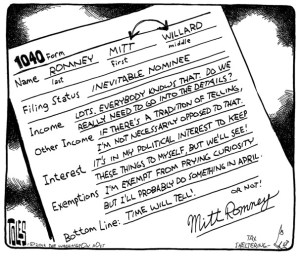 1040 Form
Name ROMNEY MITT WILLARD
last first middle
Filing Status INEVITABLE NOMINEE
Income LOTS. EVERYBODY KNOWS THAT. DO WE
REALLY NEED TO GO INTO THE DETAILS?
Other Income IF THERE'S A TRADITION OF TELLING,
I'M NOT NECESSARILY OPPOSED TO THAT.
Interest IT'S IN MY POLITICAL INTEREST TO KEEP
THESE THINGS TO MYSELF, BUT WE'LL SEE!
Exemptions I'M EXEMPT FROM PRYING CURIOSITY
BUT I'LL PROBABLY DO SOMETHING IN APRIL.
Bottom Line: TIME WILL TELL! OR NOT!
Mitt Romney
TOLES
THE WASHINGTON POST
TAX
SHELTERING-